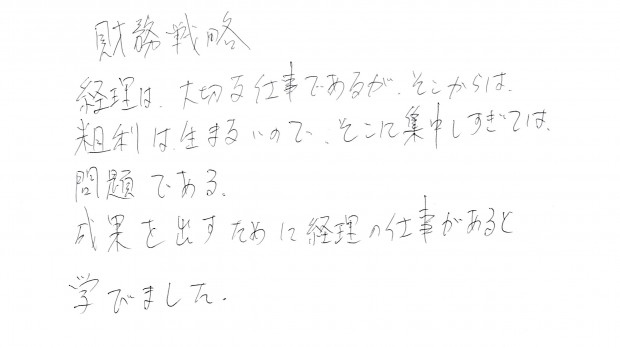 財務戦略
経理は、大切な仕事であるが、そこからは、
粗利は生まないので、そこに集中しすぎては、
問題である。
成果を出すために経理の仕事があると
学びました。